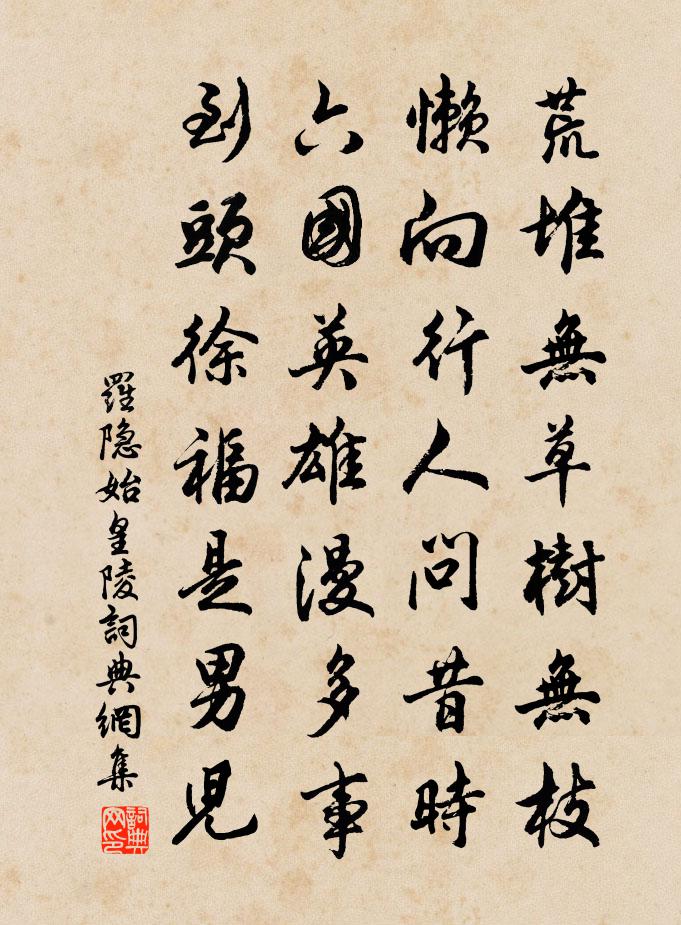 荒堆無草樹無枝
懶向行人問昔時
六國英雄漫多事
到頭徐福是男兒
羅隐始皇陵詞典網集
詞典网印